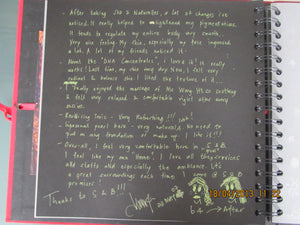 After taking
a lot of changes i've
noticed. It really helped to my pigmentations.
It tends to regulate my entire body every month.
Very nice feeling. My skin, especially my face improved
a lot. A lot of my friends noticed it.
- About the "DNA Concentrates", i love it! It really
works! Last time, my skin very dry. Now, I feel very
radiant & balance skin! I liked the texture of it...
- I really enjoyed the massage of Ms Wong
I felt very relaxed & comfortable right after every
session.
- Very Refreshing !!!
very natural. No need to
put on any foundation or make up. I like it!!!
- Over-all, I feel very comfortable here in S & B
I feel like my own Home! I love all the services
and staffs and especially the ambiance. It's
a great surroundings each time I come @ S & B
premises!
Thanks to S & B!!!
b4 → After
18/04/2013